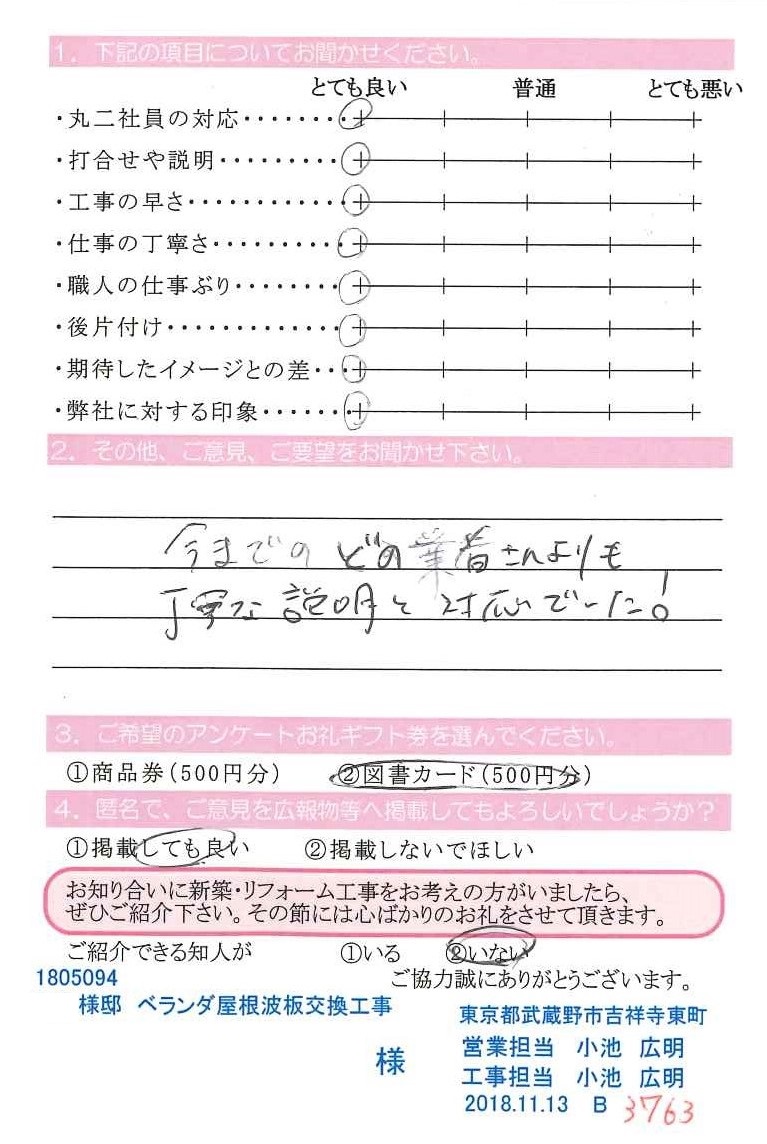 1. 下記の項目についてお聞かせください。
とても良い 普通 とても悪い
・丸二社員の対応・・・・・・・・
・打合せや説明・・・・・・・・・
・工事の早さ・・・・・・・・・・・・
・仕事の丁寧さ・・・・・・・・・・
・職人の仕事ぶり・・・・・・・・
・後片付け・・・・・・・・・・・・・
・期待したイメージとの差・・・
・弊社に対する印象・・・・・・・
2. その他、ご意見、ご要望をお聞かせ下さい。
今までの どの業者さんよりも
丁寧な 説明と 対応でした!
3. ご希望のアンケートお礼ギフト券を選んでください。
①商品券(500円分) ②図書カード(500円分)
4. 匿名で、ご意見を広報物等へ掲載してもよろしいでしょうか?
①掲載しても良い ②掲載しないでほしい
お知り合いに新築・リフォーム工事をお考えの方がいましたら、
ぜひご紹介下さい。その節には心ばかりのお礼をさせて頂きます。
ご紹介できる知人が ①いる ②いない
1805094 ご協力誠にありがとうございます。
様邸 ベランダ屋根波板交換工事
東京都武蔵野市吉祥寺東町
様
営業担当 小池 広明
工事担当 小池 広明
2018.11.13 B 3763